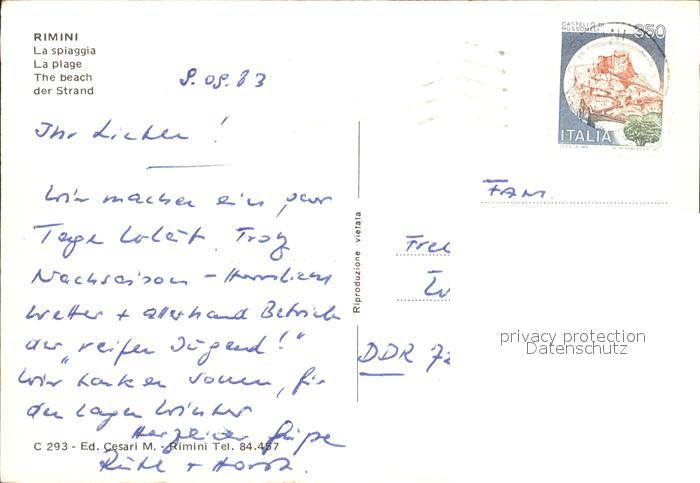 RIMINI
La spiaggia
La plage
The beach
der Strand
9.09.83
Ihr Lieben!
Wir machen ein paar
Tage Urlaub. Trotz
Nachsaison - Herrliches
Wetter + allerhand Betrieb
der "reifen Jugend!"
Wir tanken Sonne, für
den langen Winter
Herzliche Grüße
Ruth + Horst.
C 293 - Ed. Cesari M. - Rimini Tel. 84.457
Riproduzione vietata
CASTELLO DI
MUSSOMELI
350
ITALIA
FAM.
DDR
privacy protection
Datenschutz